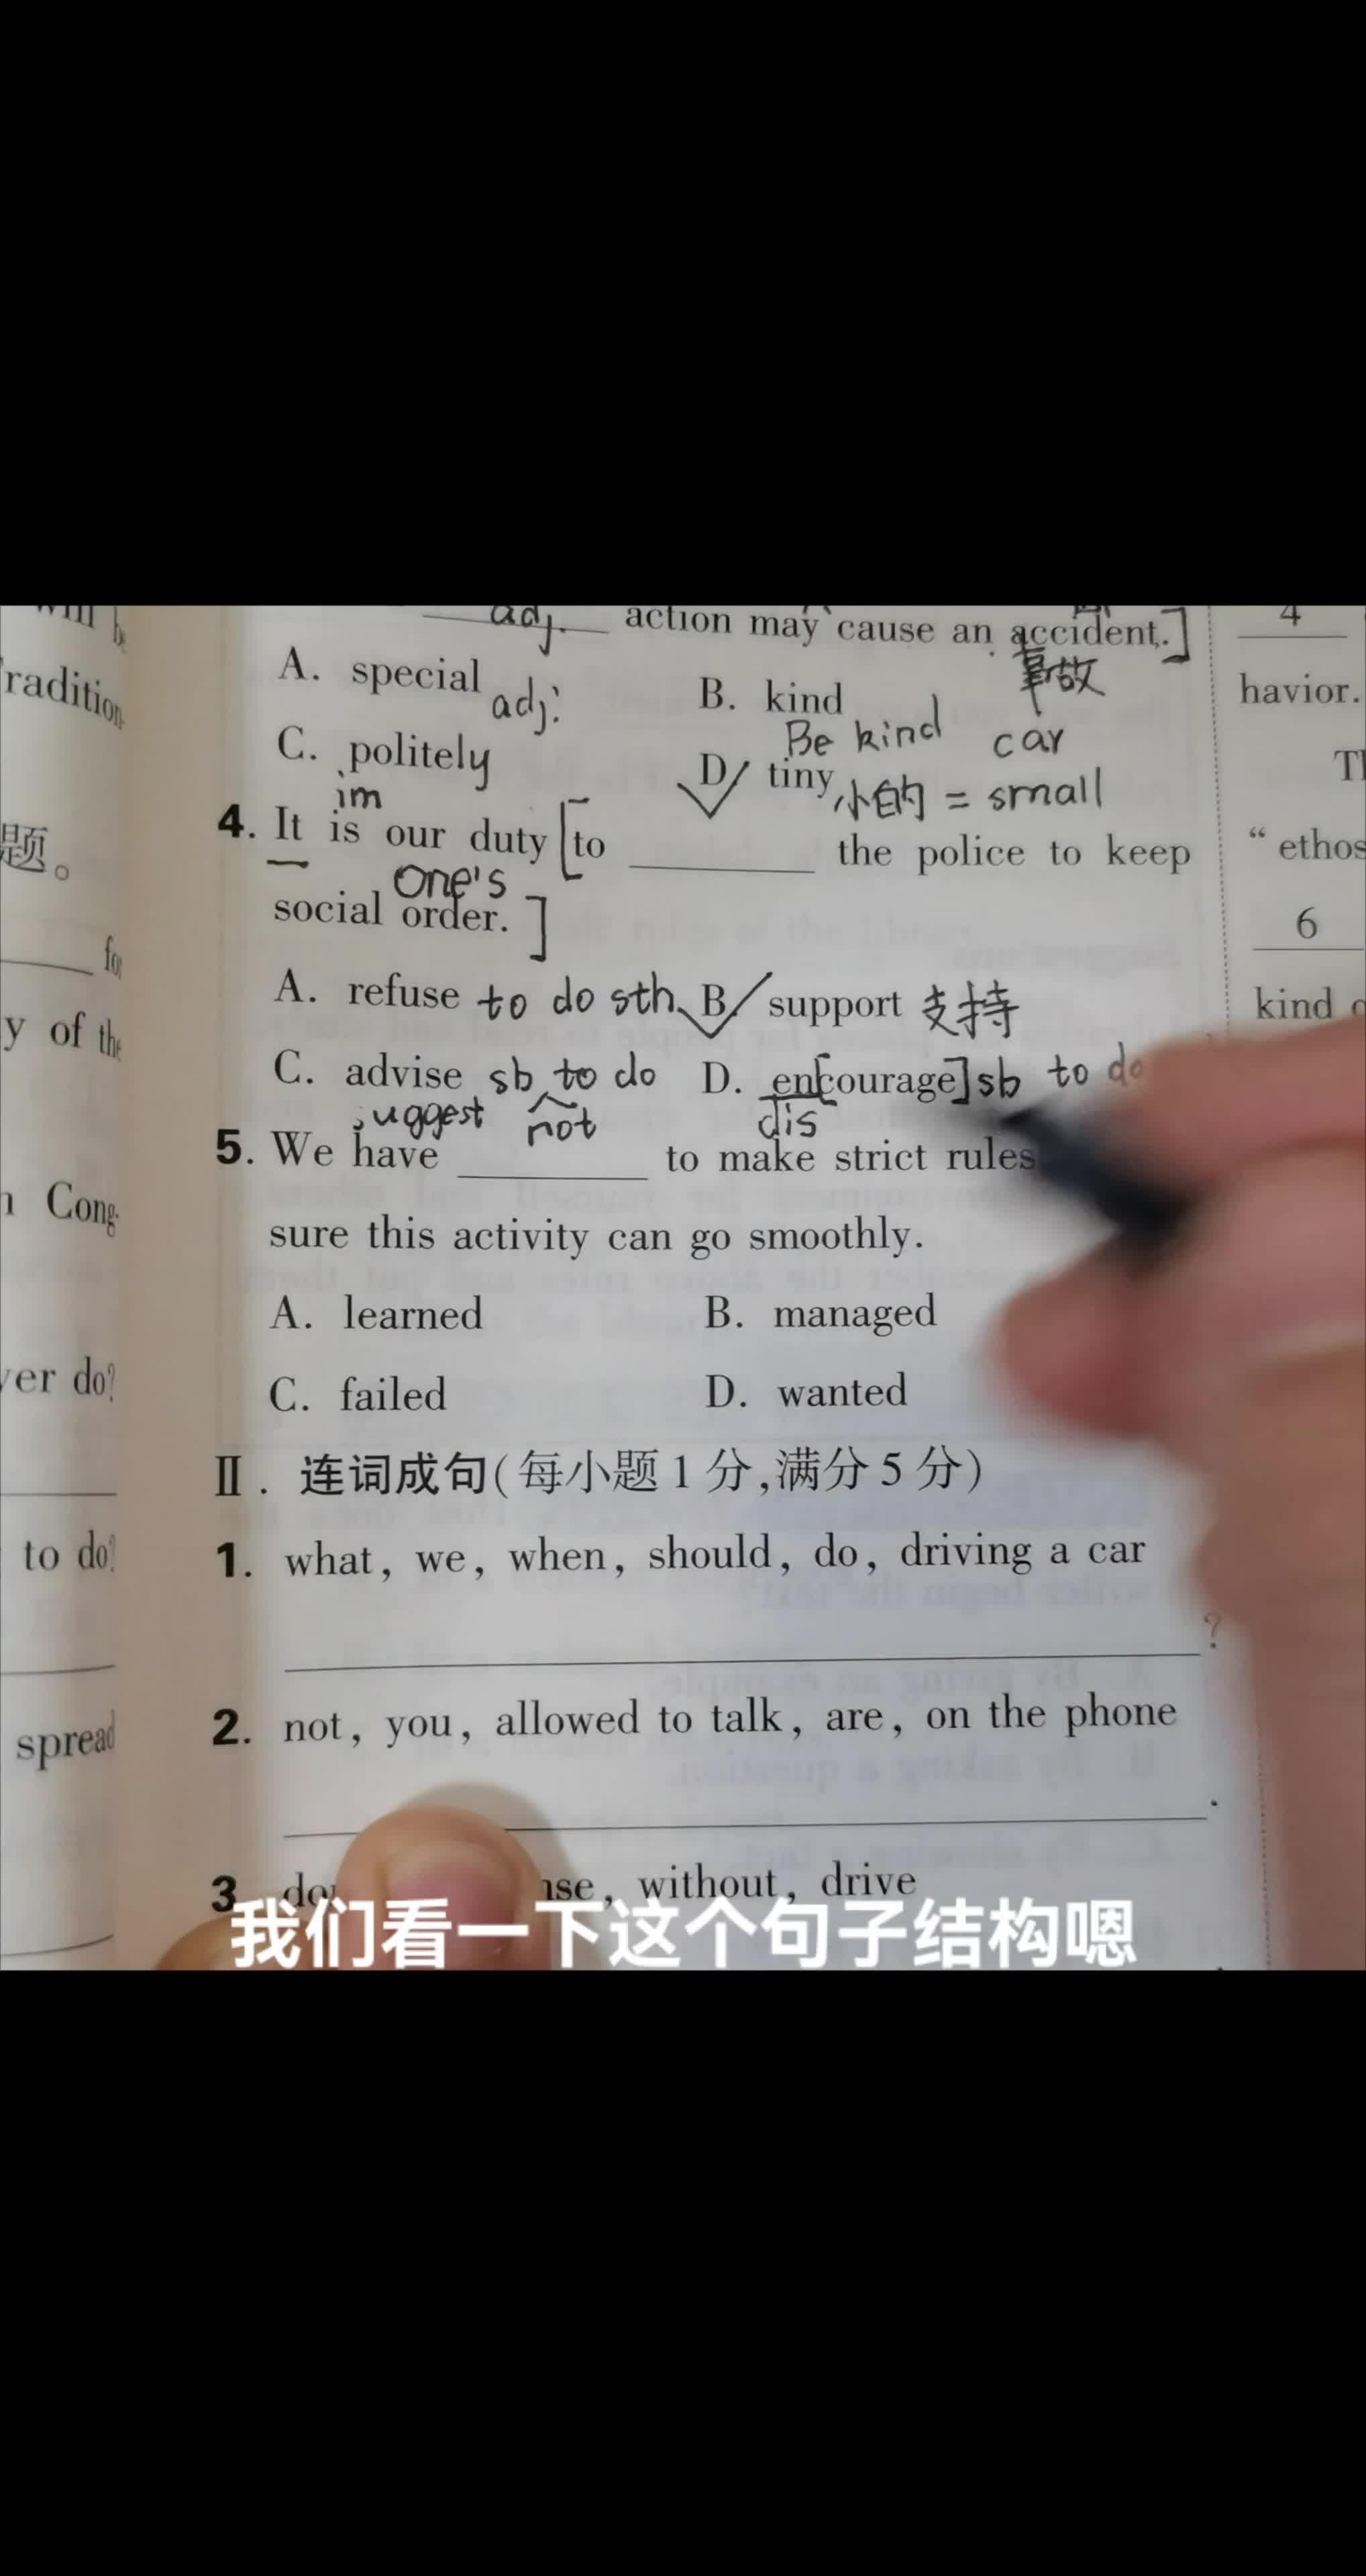 adj. action may cause an accident.]
A. special adj. B. kind 事故
C. politely Be kind car
im D. tiny 小的 = small
4. It is our duty [to ________ the police to keep
one's
social order.]
A. refuse to do sth B. support 支持
C. advise sb to do D. en[courage] sb to do
suggest not dis
5. We have ________ to make strict rules
sure this activity can go smoothly.
A. learned B. managed
C. failed D. wanted
Ⅱ. 连词成句(每小题1分,满分5分)
1. what, we, when, should, do, driving a car
?
2. not, you, allowed to talk, are, on the phone
.
3 without, drive
我们看一下这个句子结构嗯
题。
y of the
to do?
spread
4
havior.
"ethos
6
kind